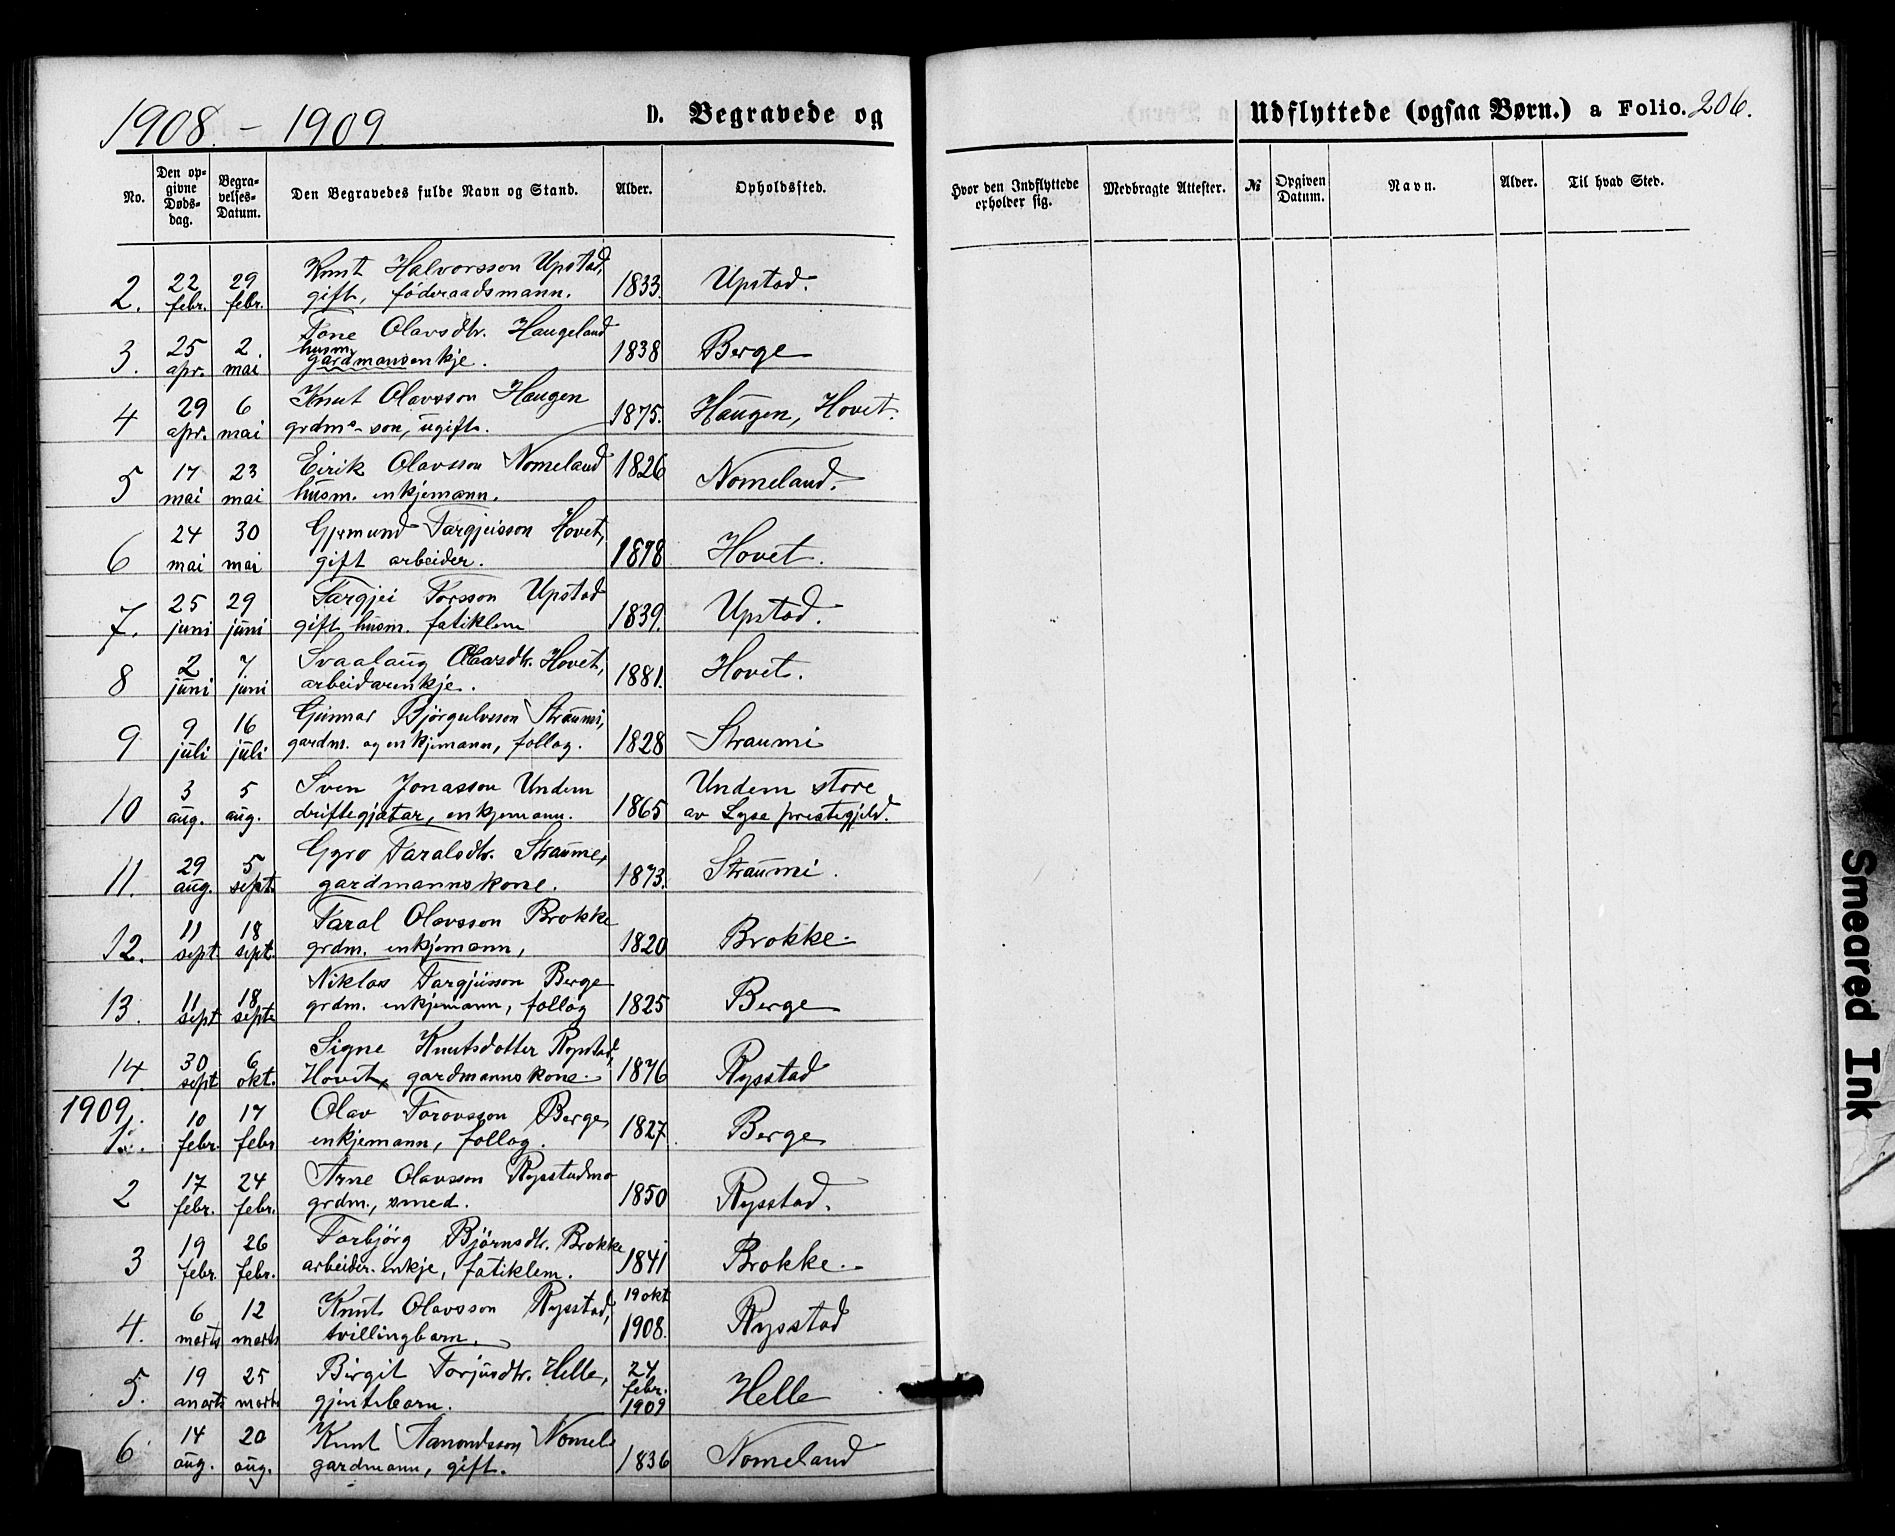 1908. - 1909.
D. Begravede og
No.
Den opgivne Dødsdag.
Begravelses-Datum.
Den Begravedes fulde Navn og Stand.
Alder.
Opholdssted.
2. 22 febr. 29 febr. Knut Halvorsson Upstad, 1833. Upstad.
gift, föderaadsmann.
3. 25 apr. 2. mai Tone Olavsdtr. Haugeland 1838 Berge
husm. gardmansenkje.
4 29 apr. 6 mai Knut Olavsson Haugen 1875. Haugen, Hovet.
grdms-son, ugift.
5 17 mai 23 mai Eirik Olavsson Nomeland 1826 Nomeland.
husm. enkjemann.
6 24 mai 30 mai Gjermund Targjeisson Hovet, 1878 Hovet.
gift arbeider.
7. 25 juni 29 juni Targjei Torsson Upstad 1839. Upstad.
gift husm. fatiklem
8 2 juni 7. juni Svaalaug Olavsdtr. Hovet, 1881. Hovet.
arbeidarenkje.
9 9 juli 16 juli Gunnar Björgulvsson Straumi, 1828 Straumi
gardm. og enkjemann, follog.
10 3 aug. 5 aug. Sven Jonasson Undem 1865 Undem store
driftegjætar, enkjemann. av Lyse prestegjeld.
11. 29 aug. 5 sept. Gyro Taralsdtr. Straume, 1873. Straumi.
gardmannskone.
12. 11 sept. 18 sept. Taral Olavsson Brokke 1820 Brokke.
grdm. enkjemann,
13. 11 sept 18 septe Niklas Targjeisson Berge 1825 Berge
grdm. enkjemann, follog
14. 30 sept 6 okt. Signe Knutsdotter Rysstad, 1876 Rysstad
Hovet, gardmannskone.
1909.
1. 10 febr. 17 febr Olav Torovsson Berge, 1827. Berge
enkjemann, follog.
2 17 febr. 24 febr. Arne Olavsson Rysstadmo 1850 Rysstad.
grdm., smed.
3 19 febr. 26 febr. Torbjörg Björnsdtr. Brokke 1841 Brokke.
arbeider-enkje, fatiklem.
4. 6 marts 12 marts Knut Olavsson Rysstad, 19 okt 1908. Rysstad
tvillingbarn.
5. 19 marts 25 marts Birgit Torjusdtr. Helle, 24 febr. 1909 Helle
gjentebarn.
6 14 aug. 20 aug. Knut Aamondsson Nomel. 1836 Nomeland
gardmann, gift.
Udflyttede (ogsaa Børn.) a Folio. 206.
Hvor den Indflyttede opholder sig.
Medbragte Attester.
№
Opgiven Datum.
Navn.
Alder.
Til hvad Sted.
Smeared Ink